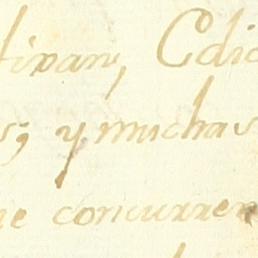 tivan, Cdic
s; y muchas
ne concurren